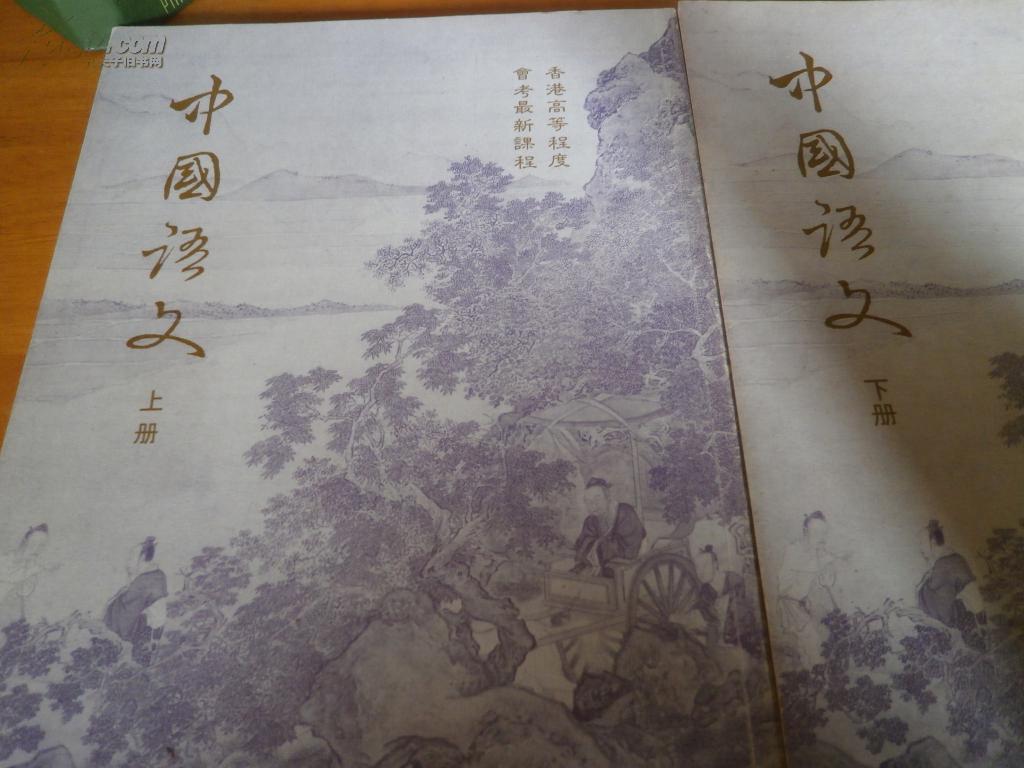 中國語文
上册
香港高等程度
會考最新課程
中國語文
下册
.com
子旧书网
PIN